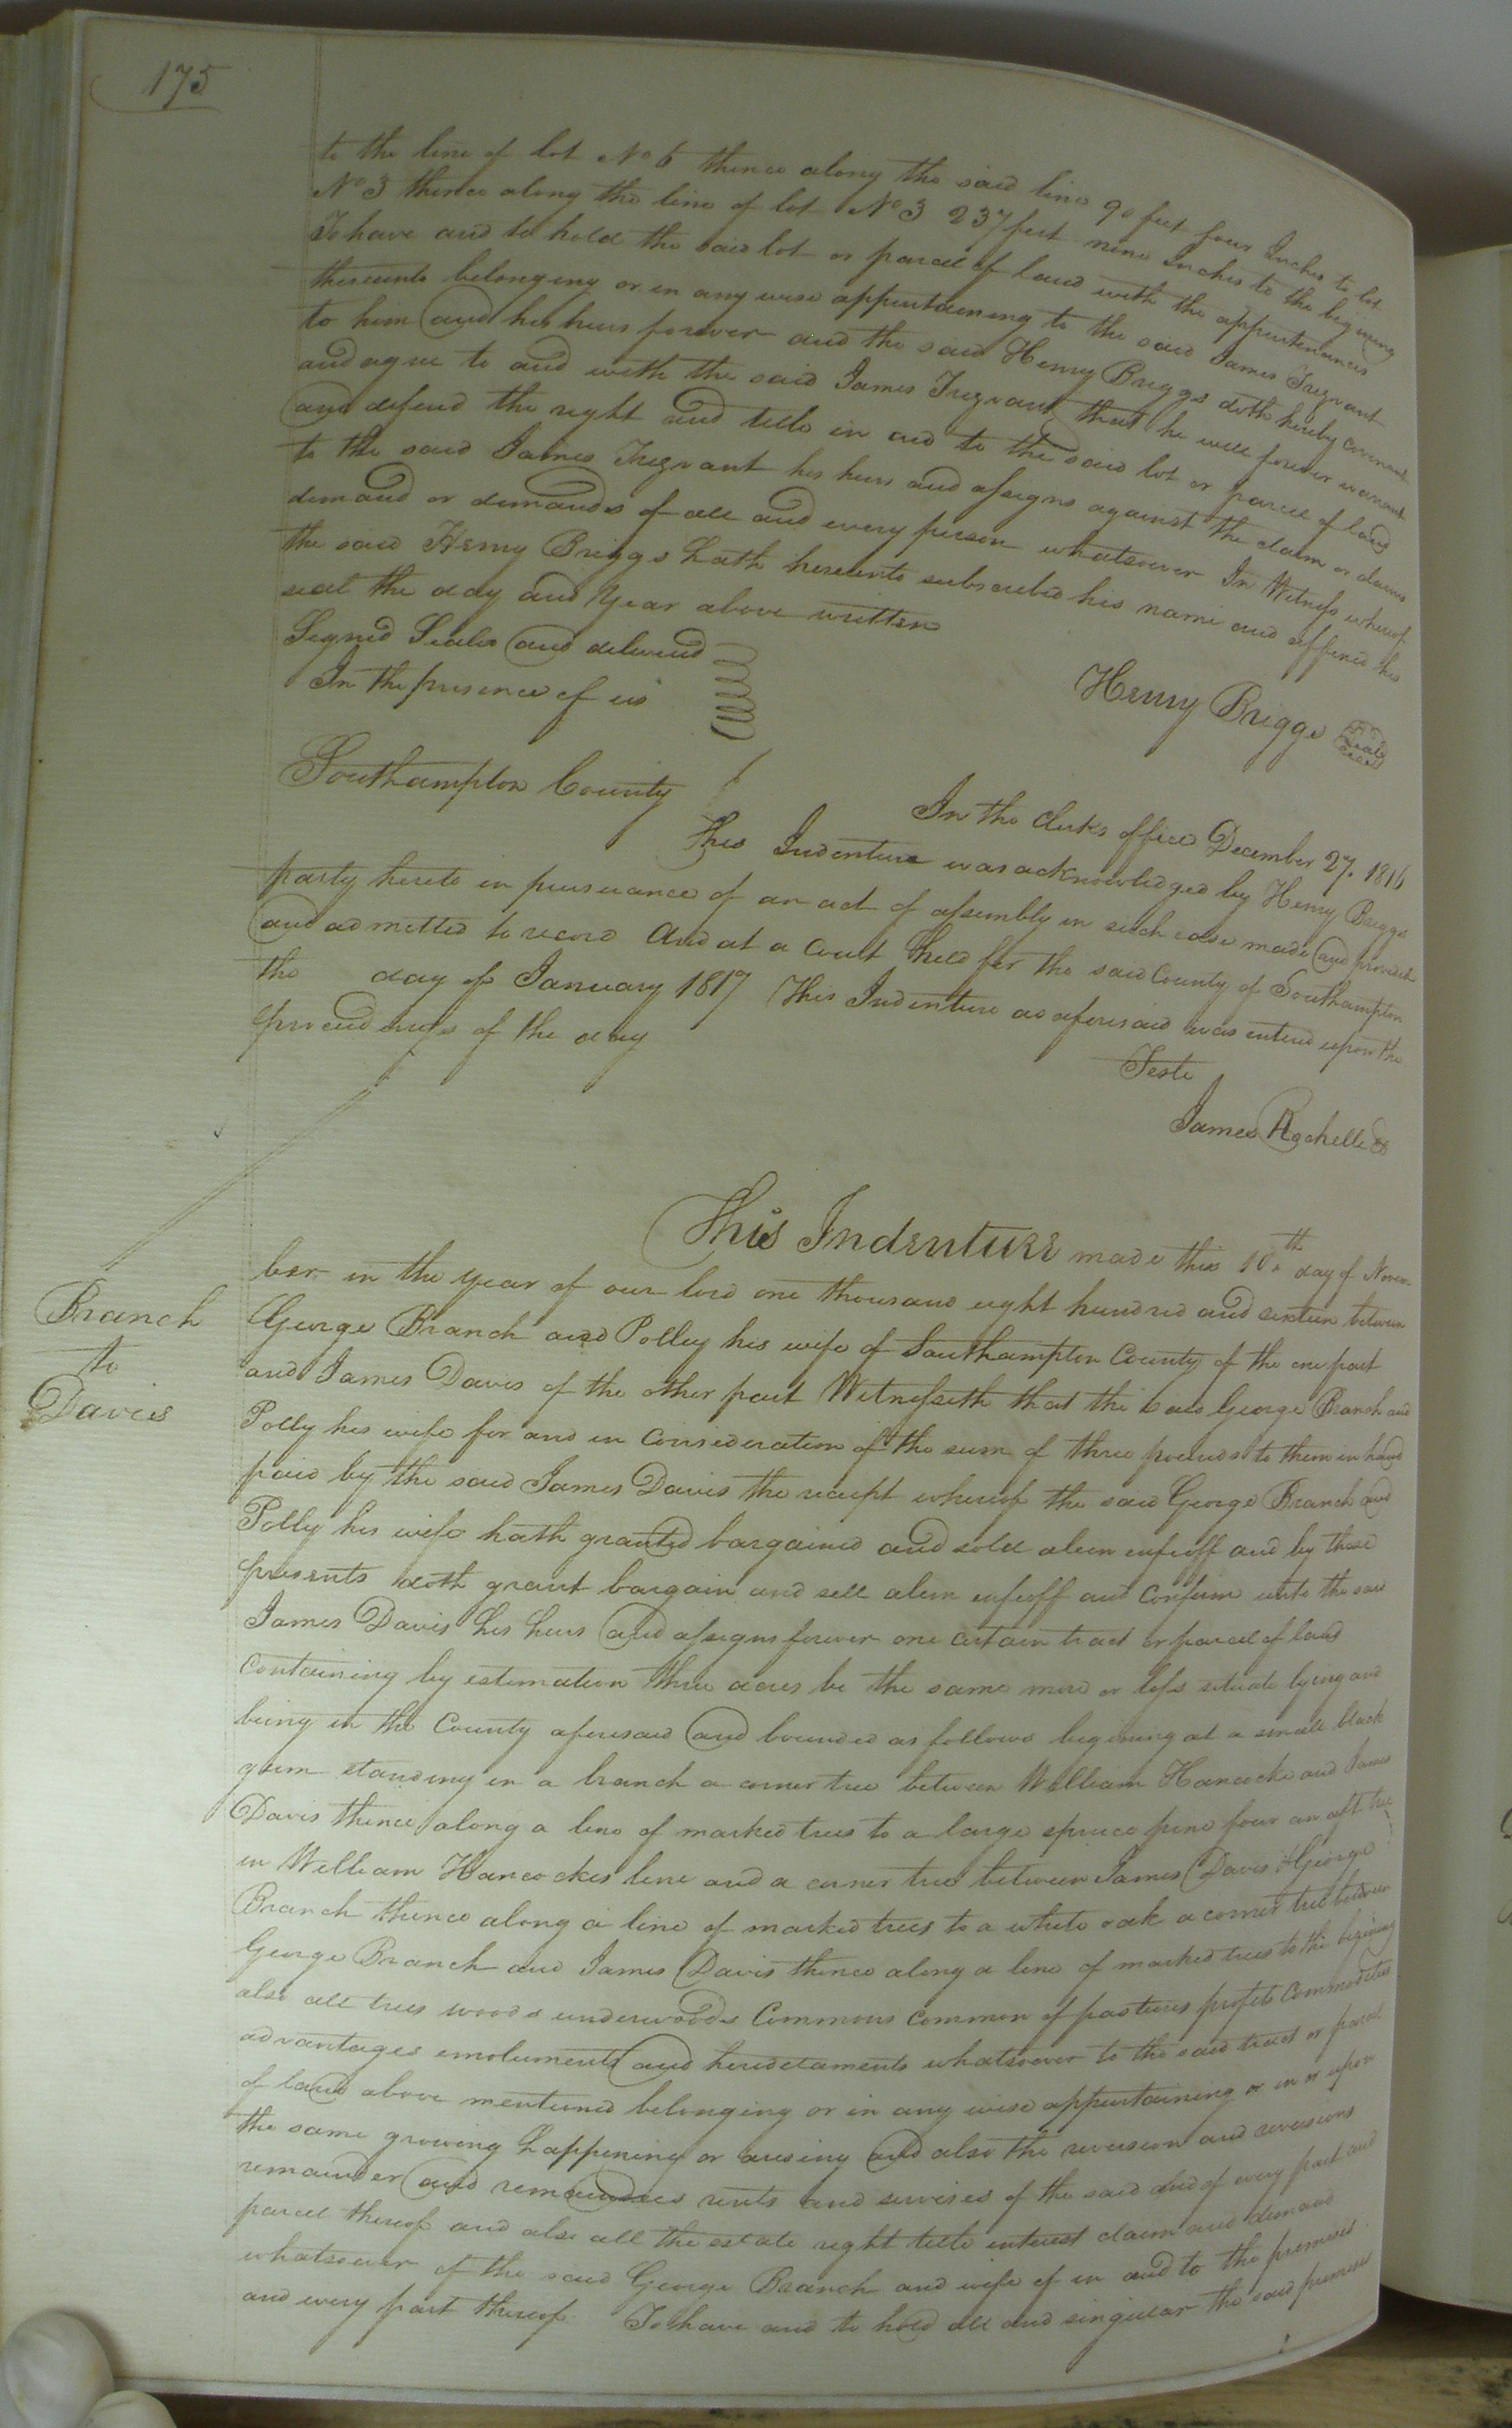 175
to the line of lot No 6 thence along the said line 90 feet four Inches to lot
No 3 thence along the line of lot No 3 237 feet nine Inches to the begining
To have and to hold the said lot or parcel of land with the appurtenances
thereunto belonging or in any wise appurtaining to the said James Trezvant
to him and his heirs forever and the said Henry Briggs doth hereby covenant
and agree to and with the said James Trezvant that he will forever warrant
and defend the right and title in and to the said lot or parcel of land
to the said James Trezvant his heirs and assigns against the claim or claims
demand or demands of all and every person whatsoever In Witness whereof
the said Henry Briggs hath hereunto subscribed his name and affixed his
seal the day and year above written
Signed Sealed and delivered
In the presence of us
Henry Briggs Seal
Southampton County
In the clerks office December 27. 1816
This Indenture was acknowledged by Henry Briggs
party hereto in pursuance of an act of assembly in such case made and provided
and admitted to record And at a Court held for the said County of Southampton
the day of January 1817 This Indenture as aforesaid was entered upon the
proceedings of the day
Teste
James Rochelle
Branch
to
Davis
This Indenture made this 10th day of Novem
ber in the year of our lord one thousand eight hundred and sixteen between
George Branch and Polley his wife of Southampton County of the one part
and James Davis of the other part Witnesseth that the said George Branch and
Polly his wife for and in Consideration of the sum of three pounds to them in hand
paid by the said James Davis the receipt whereof the said George Branch and
Polly his wife hath granted bargained and sold alein enfeoff and by these
presents doth grant bargain and sell alein enfeoff and Confirm unto the said
James Davis his heirs and assigns forever one certain tract or parcel of land
Containing by estimation three acres be the same more or less situate lying and
being in the County aforesaid and bounded as follows begining at a small black
gum standing in a branch a corner tree between William Hancocke and James
Davis thence along a line of marked trees to a large spruce pine four an aft tree
in William Hancockes line and a corner tree between James Davis & George
Branch thence along a line of marked trees to a white oak a corner tree between
George Branch and James Davis thence along a line of marked trees to the begining
also all trees woods underwoods Commons common of pastures profits Commodities
advantages emoluments and heredetaments whatsoever to the said tract or parcel
of land above mentioned belonging or in any wise appurtaining or in or upon
the same growing happening or arising and also the reversion and reversions
remainder and remainders rents and services of the said and of every part and
parcel thereof and also all the estate right title interest claim and demand
whatsoever of the said George Branch and wife of in and to the premises
and every part thereof To have and to hold all and singular the said premises